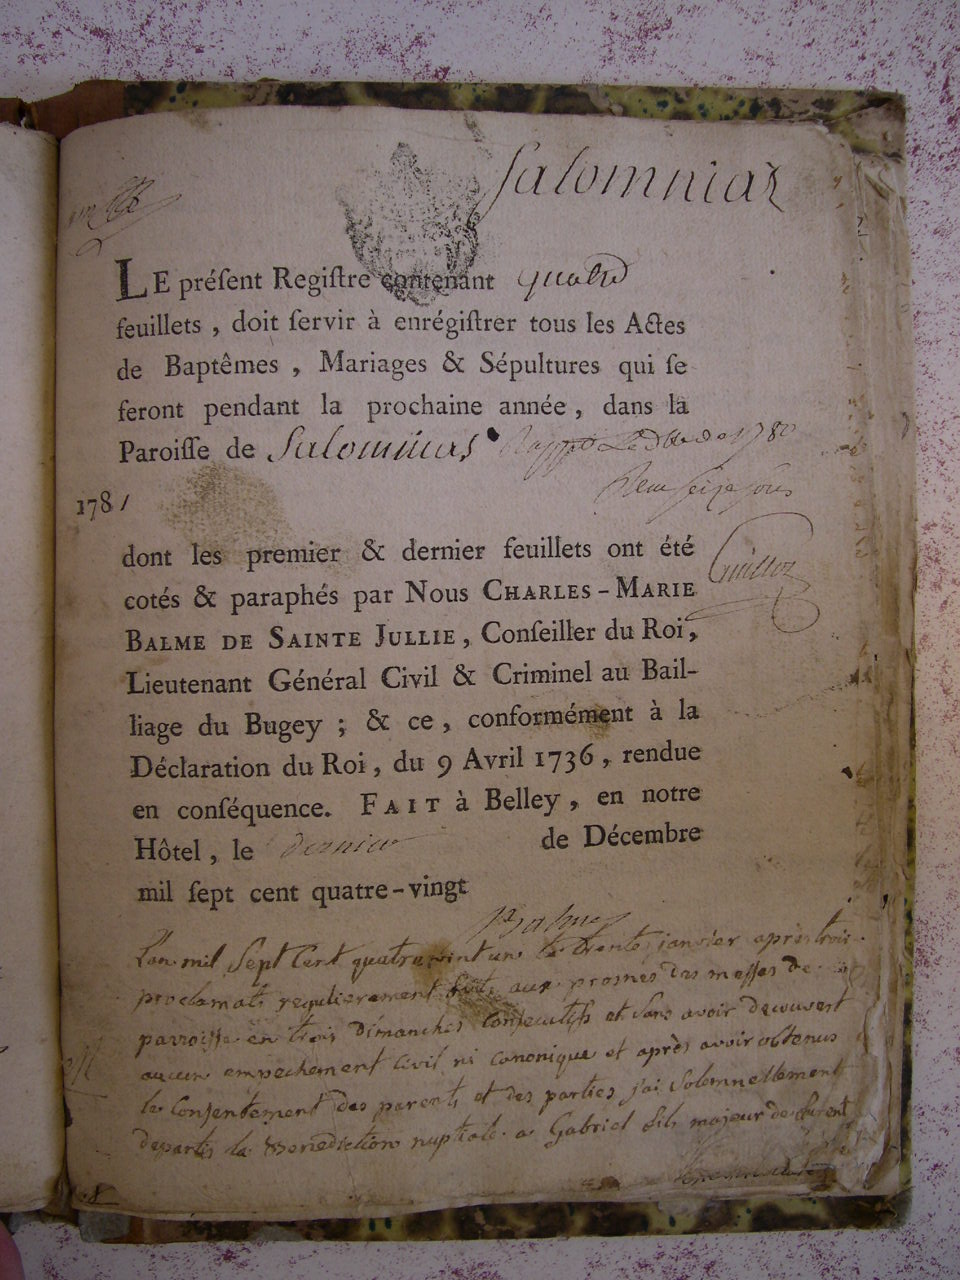 Salomniat
LE préſent Regiſtre contenant quatre
feuillets, doit ſervir à enrégiſtrer tous les Actes
de Baptêmes, Mariages & Sépultures qui ſe
feront pendant la prochaine année, dans la
Paroiſſe de Salomnias
1780
Reçu ſeize ſous
1781
dont les premier & dernier feuillets ont été
cotés & paraphés par Nous CHARLES-MARIE
BALME DE SAINTE JULLIE, Conſeiller du Roi,
Lieutenant Général Civil & Criminel au Bail-
liage du Bugey ; & ce, conformément à la
Déclaration du Roi, du 9 Avril 1736, rendue
en conſéquence. FAIT à Belley, en notre
Hôtel, le dernier de Décembre
mil ſept cent quatre-vingt
Balme
L'an mil Sept Cent quatrevint un le trente janvier après trois
proclamats regulierement faits aux prosnes des messes de
parroisse en trois dimanches consecutifs et sans avoir decouvert
aucun empechement civil ni canonique et après avoir obtenus
le consentement des parents et des parties j'ai Solemnellement
departis la Benediction nuptiale a Gabriel fils majeur de